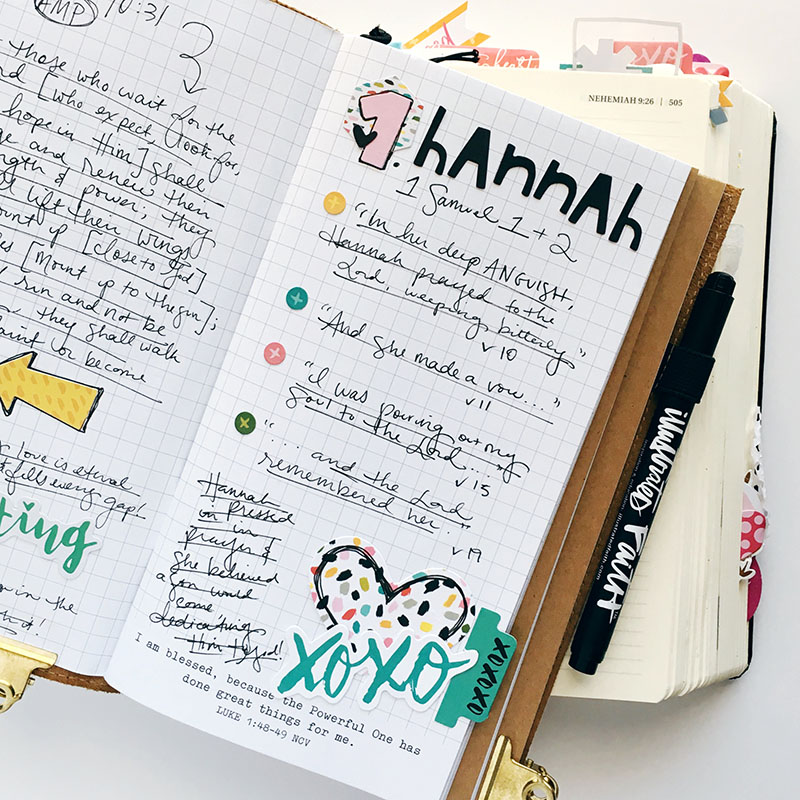 AMP
10:31
those who wait for the
[who expect, look for,
hope in Him] shall
and renew their
& power; they
lift their wings
up [close to God]
[mount up to the sun];
run and not be
they shall walk
faint or become
love is eternal
fills every gap!
ting
in the
1. hannah
1 Samuel 1 + 2
"In her deep ANGUISH,
Hannah prayed to the
Lord, weeping bitterly"
v 10
"And she made a vow..."
v 11
"I was pouring out my
soul to the Lord..."
v 15
"... and the Lord
remembered her."
v 19
Hannah
pressed
in
prayer &
she believed
would
come
dedicating
Him to God!
xoxo
xoxoxo
I am blessed, because the Powerful One has
done great things for me.
LUKE 1:48-49 NCV
xo
NEHEMIAH 9:26 | 505
illustrated Faith